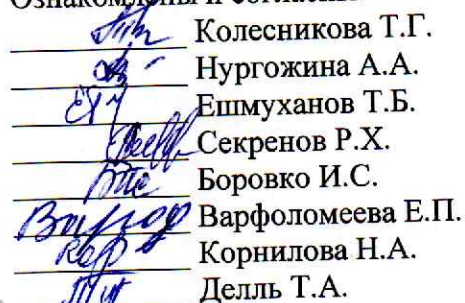 Ознакомлены и согласны
Колесникова Т.Г.
Нургожина А.А.
Ешмуханов Т.Б.
Секренов Р.Х.
Боровко И.С.
Варфоломеева Е.П.
Корнилова Н.А.
Делль Т.А.